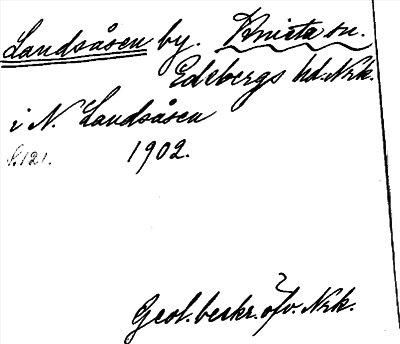 Landsåsen by. Knista sn.
Edsbergs hd. Nrk.
i N. Landsåsen
s. 121. 1902.
Geol. beskr. öfv. Nrk.